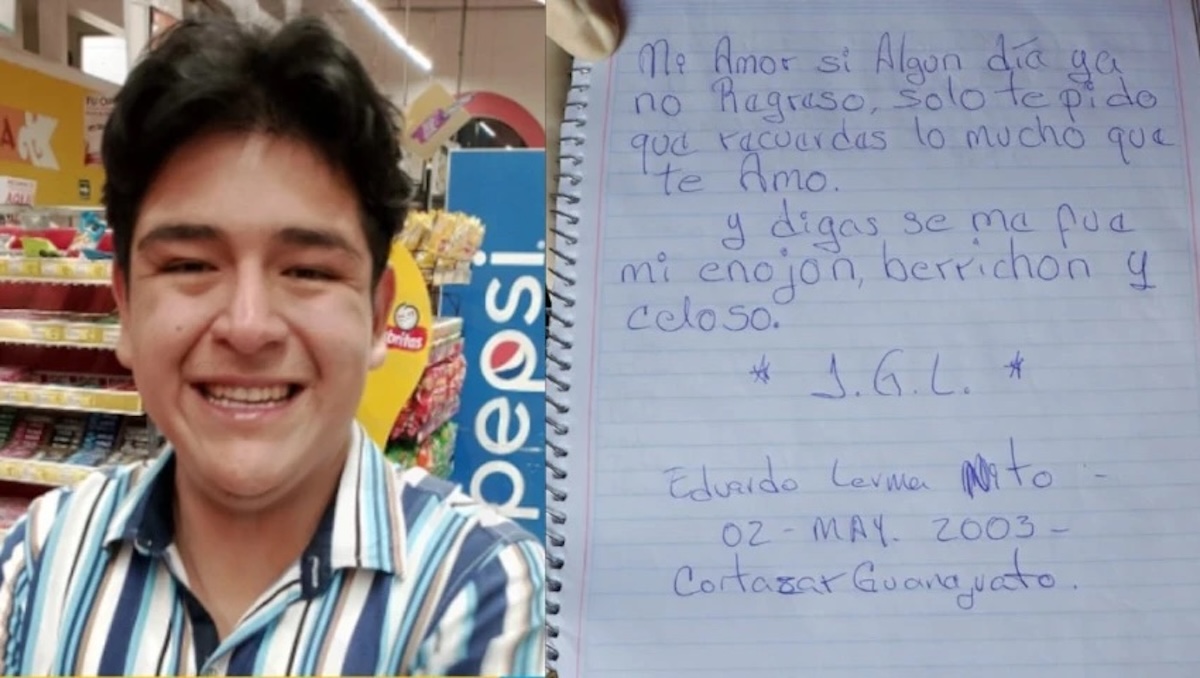 pepsi.
Mi Amor si Algun día ya
no Ragraso, solo te pido
que racuardas lo mucho que
te Amo.
y digas se ma fua
mi enojon, berrichon y
celoso.
* J.G.L. *
Eduardo Lerma Nito -
02 - MAY. 2003 -
Cortazar Guanajuato.